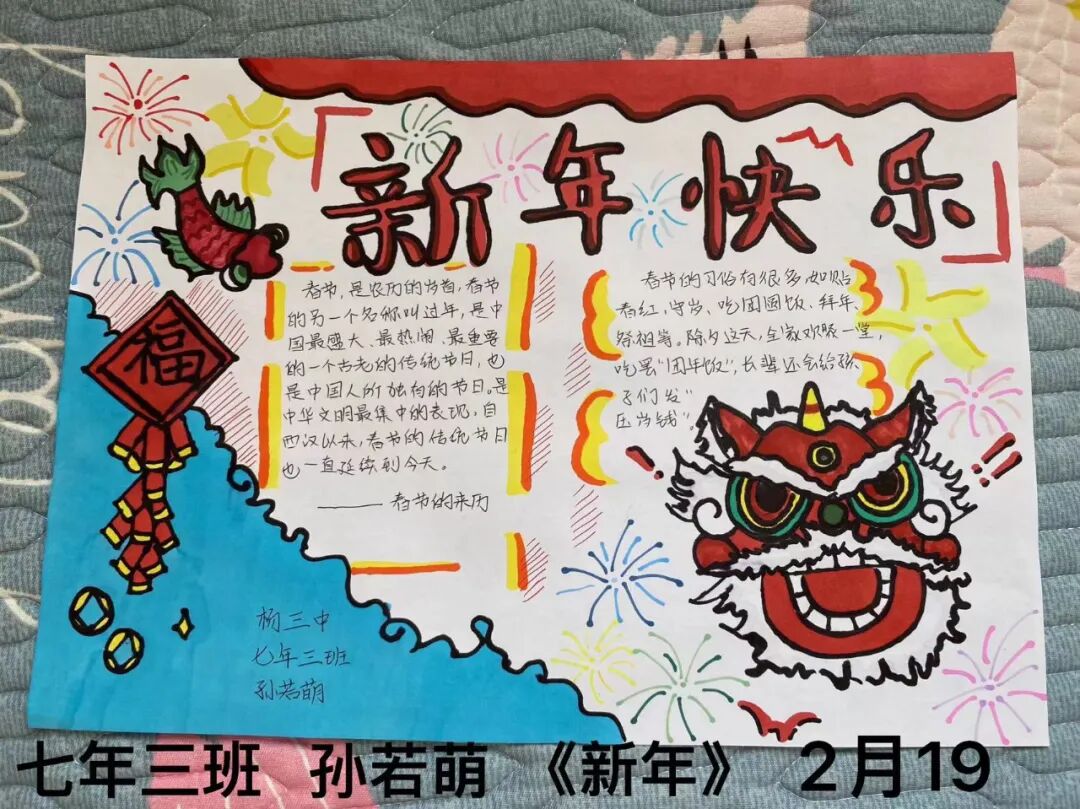 新年快乐
福
春节,是农历的岁首,春节
的另一个名称叫过年,是中
国最盛大、最热闹、最重要
的一个古老的传统节日,也
是中国人所独有的节日。是
中华文明最集中的表现,自
西汉以来,春节的传统节日
也一直延续到今天。
——春节的来历
春节的习俗有很多,如贴
春红,守岁、吃团圆饭、拜年、
祭祖等。除夕这天,全家欢聚一堂,
吃罢“团年饭”,长辈还会给孩
子们发“
压岁钱”。
杨三中
七年三班
孙若萌
七年三班 孙若萌 《新年》 2月19